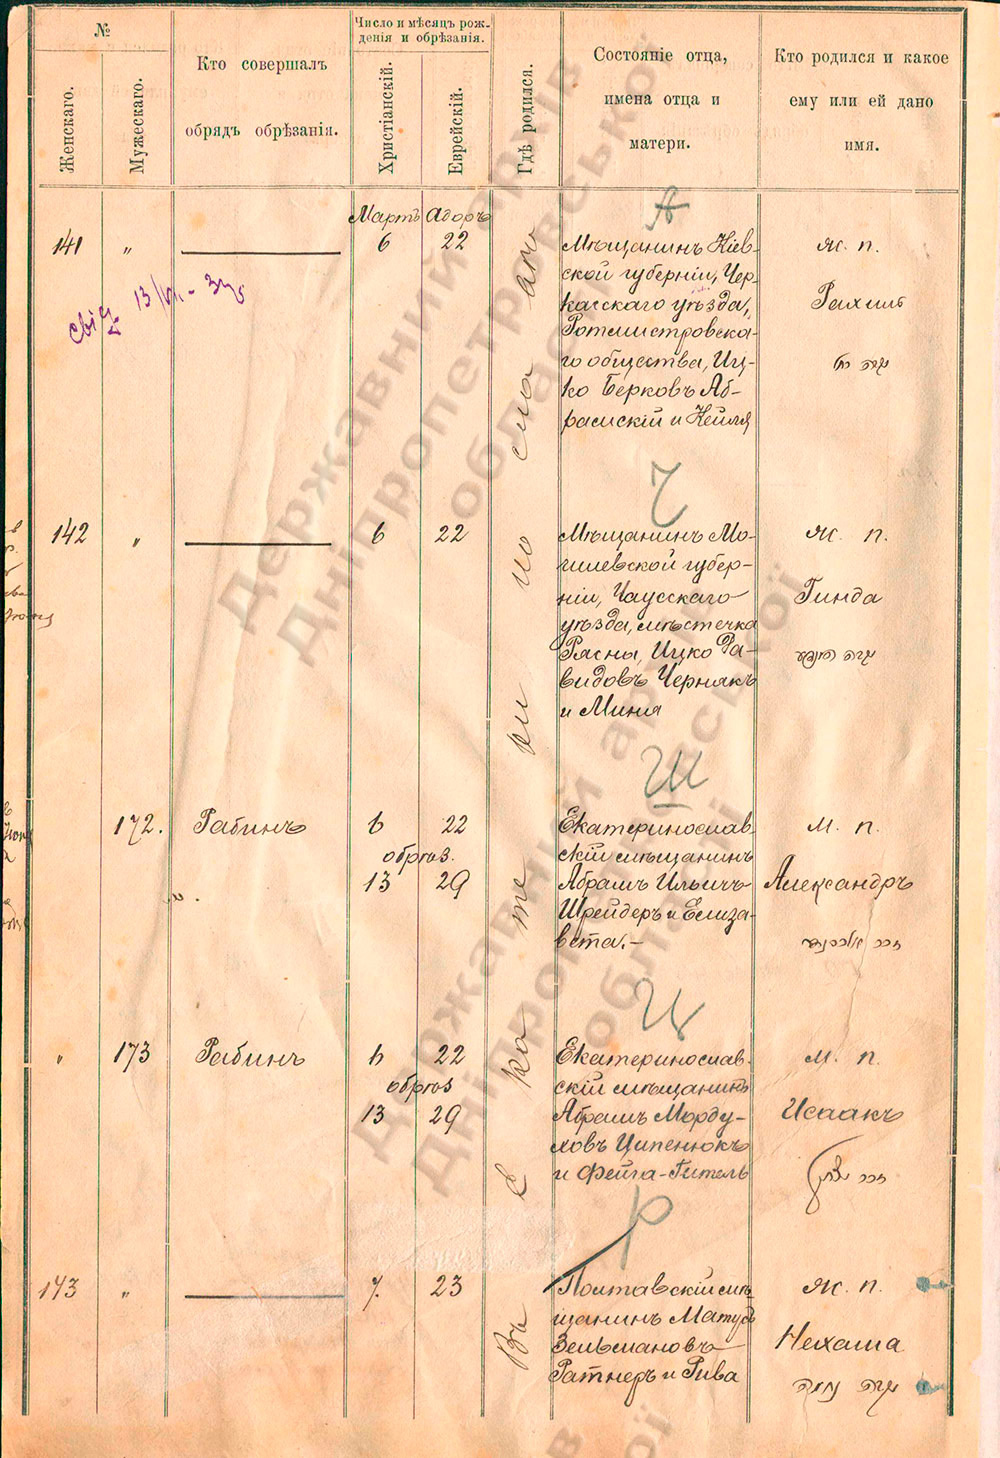 №
Женскаго.
Мужескаго.
Кто совершалъ
обрядъ обрѣзанія.
Число и мѣсяцъ рож-
денія и обрѣзанія.
Христіанскій.
Еврейскій.
Гдѣ родился.
Состояніе отца,
имена отца и
матери.
Кто родился и какое
ему или ей дано
имя.
Въ Екатеринославѣ
Мартъ Адоръ
А
141 " 6 22
Мѣщанинъ Кіев-
ской губерніи, Чер-
касскаго уѣзда,
Ротмистровска-
го общества, Иц-
ко Берковъ Аб-
рамскій и Кейля
ж. п.
Рахиль
13/VI
Ч
142 " 6 22
Мѣщанинъ Мо-
гилевской губер-
ніи, Чаусскаго
уѣзда, мѣстечка
Рясны, Ицко Да-
видовъ Чернякъ
и Миня
ж. п.
Гинда
Ш
172. Рабинъ 6 22
обрѣз.
13 29
Екатеринослав-
скій мѣщанинъ
Абрамъ Ильичъ
Шрейдеръ и Елиза-
вета.-
м. п.
Александръ
זכר אלכסנדר
Ц
" 173 Рабинъ 6 22
обрѣз
13 29
Екатеринослав-
скій мѣщанинъ
Абрамъ Морду-
ховъ Ципенюкъ
и Фейга-Гитель
м. п.
Исаакъ
זכר יצחק
Р
143 " 7. 23
Полтавскій мѣ-
щанинъ Матусъ
Зельмановъ
Ратнеръ и Рива
ж. п.
Нехама
Державний архів
Дніпропетровської
області
Державний архів
Дніпропетровської
області